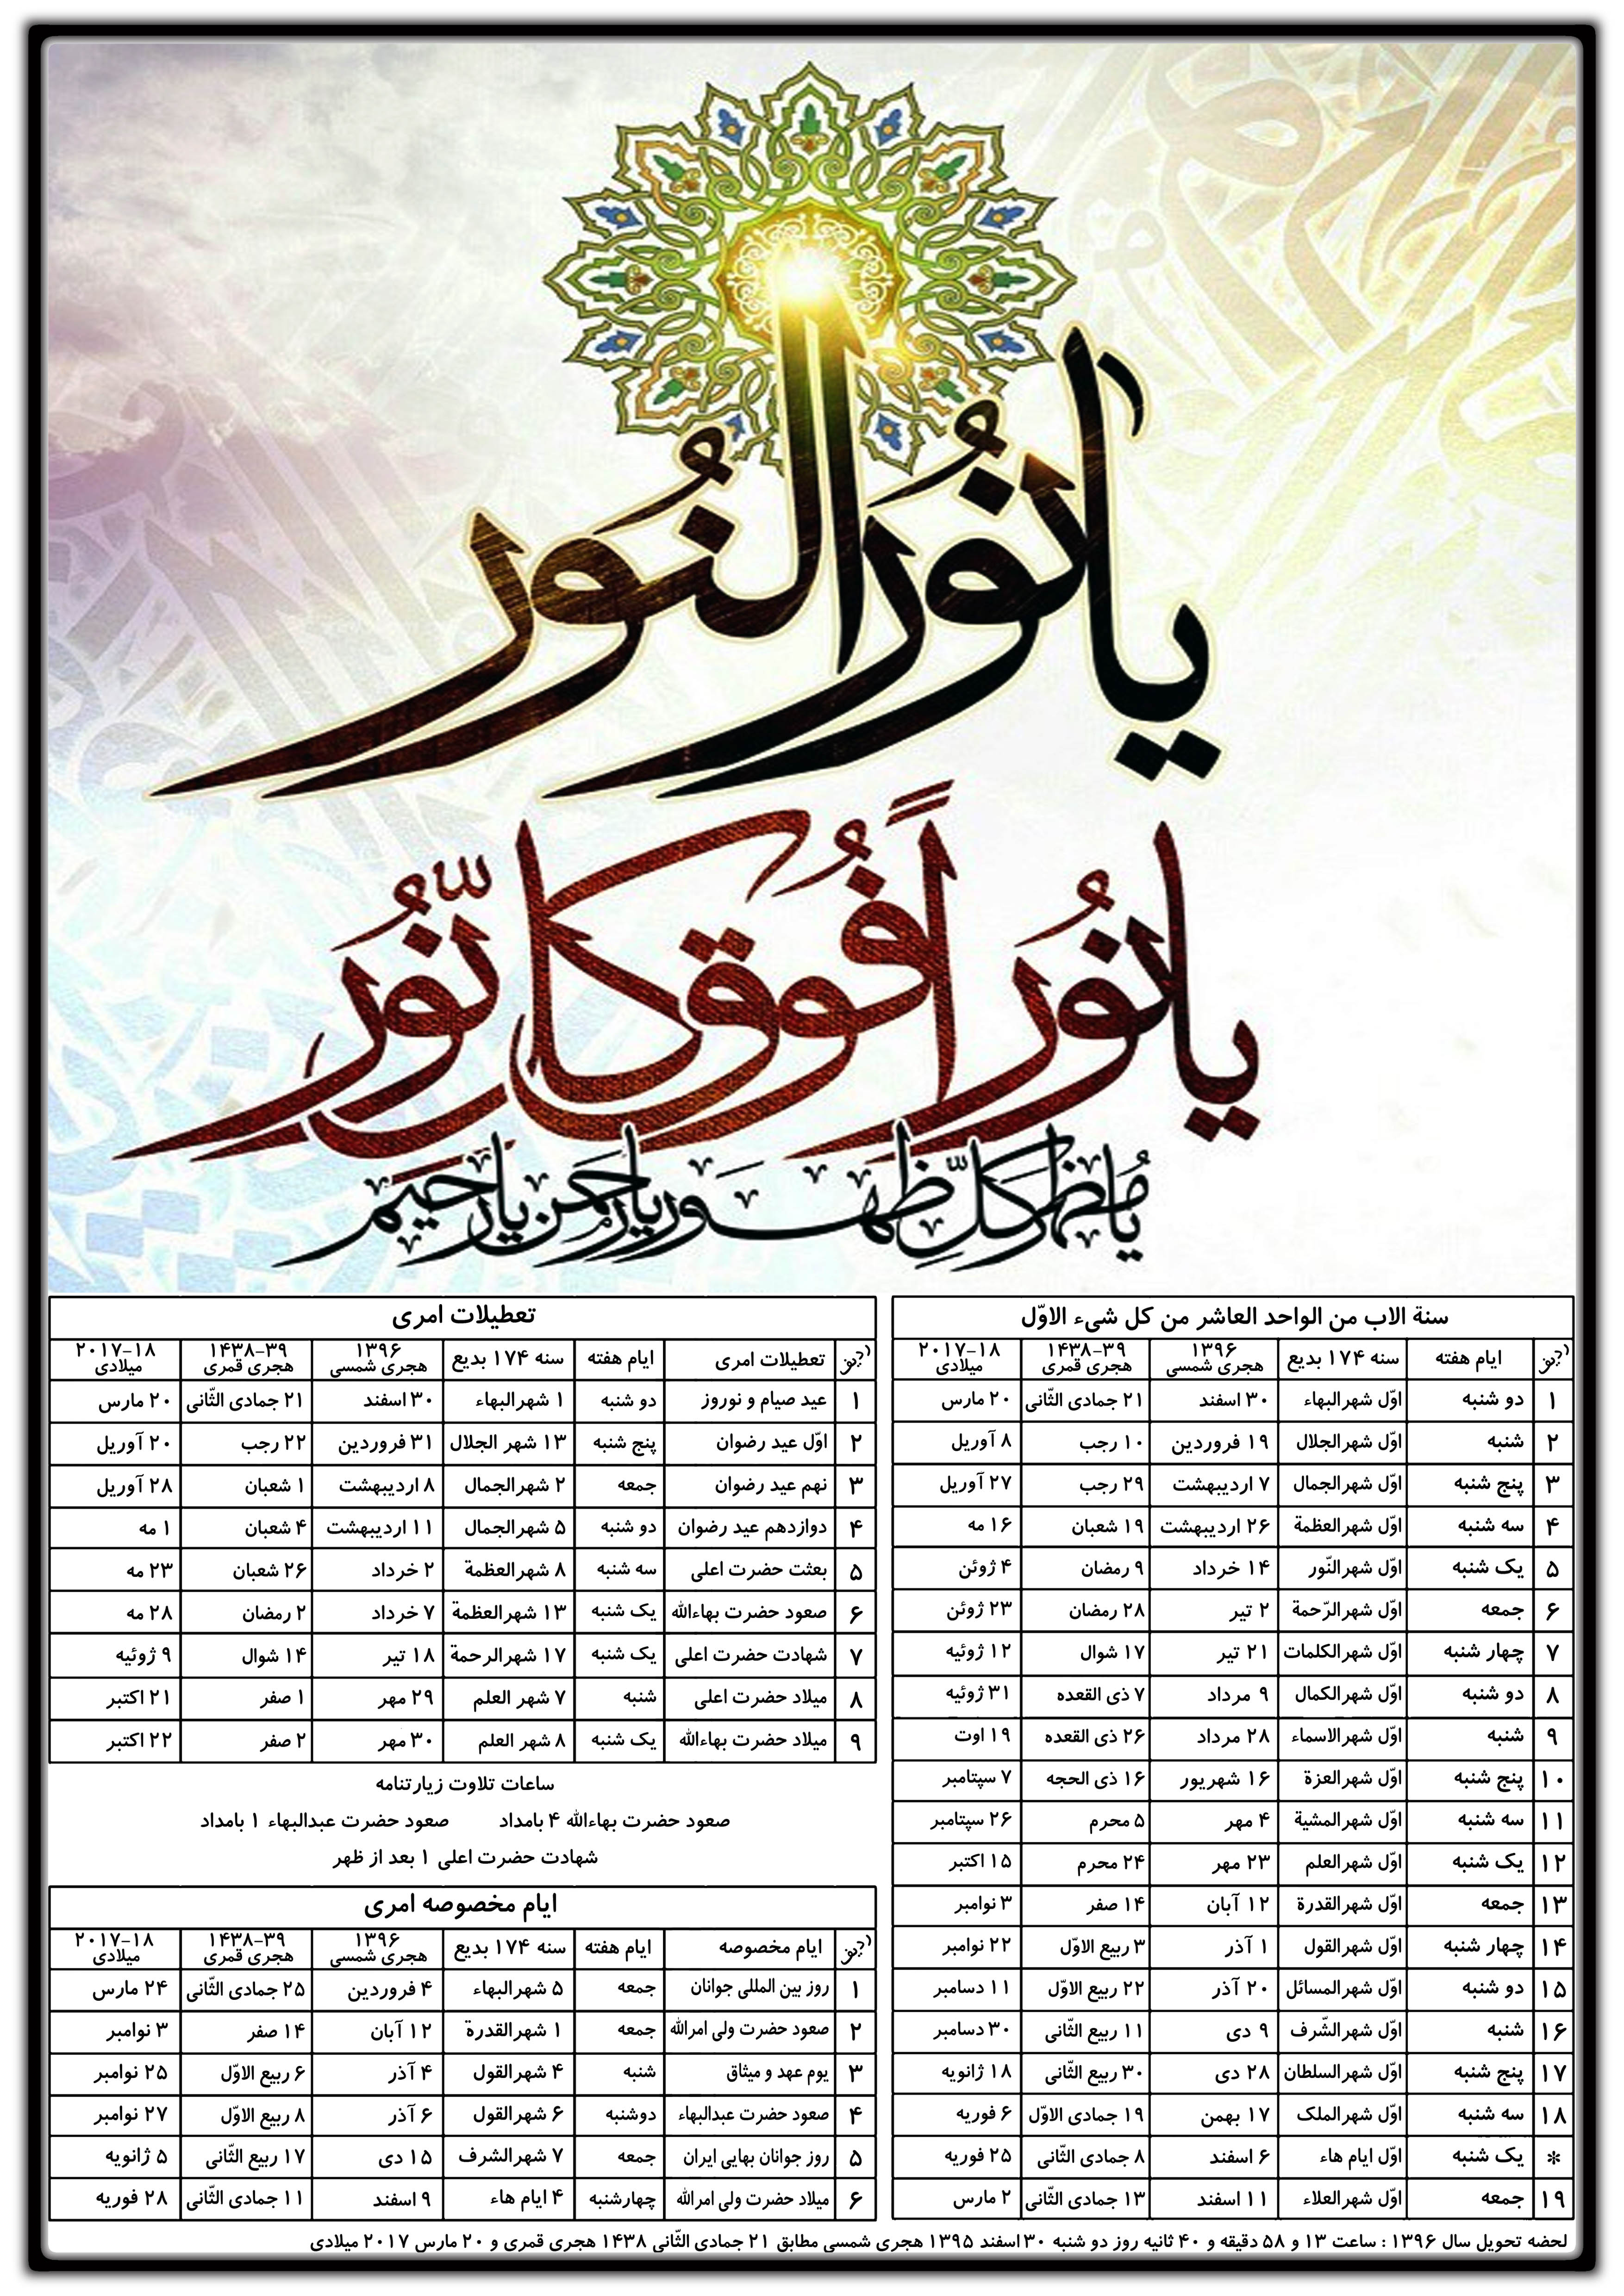 يا نُور النُور
يا نُوراً فُوق كلّ نُور
يا مُظهر كلّ ظهور يا رحمن يا رحيم
سنة الاب من الواحد العاشر من كل شیء الاوّل
ردیف ایام هفته سنه ۱۷۴ بدیع ۱۳۹۶ هجری شمسی ۱۴۳۸-۳۹ هجری قمری ۲۰۱۷-۱۸ میلادی
۱ دو شنبه اوّل شهرالبهاء ۳۰ اسفند ۲۱ جمادی الثّانی ۲۰ مارس
۲ شنبه اوّل شهرالجلال ۱۹ فروردین ۱۰ رجب ۸ آوریل
۳ پنج شنبه اوّل شهرالجمال ۷ اردیبهشت ۲۹ رجب ۲۷ آوریل
۴ سه شنبه اوّل شهرالعظمة ۲۶ اردیبهشت ۱۹ شعبان ۱۶ مه
۵ یک شنبه اوّل شهرالنّور ۱۴ خرداد ۹ رمضان ۴ ژوئن
۶ جمعه اوّل شهرالرّحمة ۲ تیر ۲۸ رمضان ۲۳ ژوئن
۷ چهار شنبه اوّل شهرالکلمات ۲۱ تیر ۱۷ شوال ۱۲ ژوئیه
۸ دو شنبه اوّل شهرالکمال ۹ مرداد ۷ ذی القعده ۳۱ ژوئیه
۹ شنبه اوّل شهرالاسماء ۲۸ مرداد ۲۶ ذی القعده ۱۹ اوت
۱۰ پنج شنبه اوّل شهرالعزة ۱۶ شهریور ۱۶ ذی الحجه ۷ سپتامبر
۱۱ سه شنبه اوّل شهرالمشیة ۴ مهر ۵ محرم ۲۶ سپتامبر
۱۲ یک شنبه اوّل شهرالعلم ۲۳ مهر ۲۴ محرم ۱۵ اکتبر
۱۳ جمعه اوّل شهرالقدرة ۱۲ آبان ۱۴ صفر ۳ نوامبر
۱۴ چهار شنبه اوّل شهرالقول ۱ آذر ۳ ربیع الاوّل ۲۲ نوامبر
۱۵ دو شنبه اوّل شهرالمسائل ۲۰ آذر ۲۲ ربیع الاوّل ۱۱ دسامبر
۱۶ شنبه اوّل شهرالشّرف ۹ دی ۱۱ ربیع الثّانی ۳۰ دسامبر
۱۷ پنج شنبه اوّل شهرالسلطان ۲۸ دی ۳۰ ربیع الثّانی ۱۸ ژانویه
۱۸ سه شنبه اوّل شهرالملک ۱۷ بهمن ۱۹ جمادی الاوّل ۶ فوریه
* یک شنبه اوّل ایام هاء ۶ اسفند ۸ جمادی الثّانی ۲۵ فوریه
۱۹ جمعه اوّل شهرالعلاء ۱۱ اسفند ۱۳ جمادی الثّانی ۲ مارس
تعطیلات امری
ردیف تعطیلات امری ایام هفته سنه ۱۷۴ بدیع ۱۳۹۶ هجری شمسی ۱۴۳۸-۳۹ هجری قمری ۲۰۱۷-۱۸ میلادی
۱ عید صیام و نوروز دو شنبه ۱ شهرالبهاء ۳۰ اسفند ۲۱ جمادی الثّانی ۲۰ مارس
۲ اوّل عید رضوان پنج شنبه ۱۳ شهر الجلال ۳۱ فروردین ۲۲ رجب ۲۰ آوریل
۳ نهم عید رضوان جمعه ۲ شهرالجمال ۸ اردیبهشت ۱ شعبان ۲۸ آوریل
۴ دوازدهم عید رضوان دو شنبه ۵ شهرالجمال ۱۱ اردیبهشت ۴ شعبان ۱ مه
۵ بعثت حضرت اعلی سه شنبه ۸ شهرالعظمة ۲ خرداد ۲۶ شعبان ۲۳ مه
۶ صعود حضرت بهاءالله یک شنبه ۱۳ شهرالعظمة ۷ خرداد ۲ رمضان ۲۸ مه
۷ شهادت حضرت اعلی یک شنبه ۱۷ شهرالرحمة ۱۸ تیر ۱۴ شوال ۹ ژوئیه
۸ میلاد حضرت اعلی شنبه ۷ شهر العلم ۲۹ مهر ۱ صفر ۲۱ اکتبر
۹ میلاد حضرت بهاءالله یک شنبه ۸ شهر العلم ۳۰ مهر ۲ صفر ۲۲ اکتبر
ساعات تلاوت زیارتنامه
صعود حضرت بهاءالله ۴ بامداد صعود حضرت عبدالبهاء ۱ بامداد
شهادت حضرت اعلی ۱ بعد از ظهر
ایام مخصوصه امری
ردیف ایام مخصوصه ایام هفته سنه ۱۷۴ بدیع ۱۳۹۶ هجری شمسی ۱۴۳۸-۳۹ هجری قمری ۲۰۱۷-۱۸ میلادی
۱ روز بین المللی جوانان جمعه ۵ شهرالبهاء ۴ فروردین ۲۵ جمادی الثّانی ۲۴ مارس
۲ صعود حضرت ولی امرالله جمعه ۱ شهرالقدرة ۱۲ آبان ۱۴ صفر ۳ نوامبر
۳ یوم عهد و میثاق شنبه ۴ شهرالقول ۴ آذر ۶ ربیع الاوّل ۲۵ نوامبر
۴ صعود حضرت عبدالبهاء دوشنبه ۶ شهرالقول ۶ آذر ۸ ربیع الاوّل ۲۷ نوامبر
۵ روز جوانان بهایی ایران جمعه ۷ شهرالشرف ۱۵ دی ۱۷ ربیع الثّانی ۵ ژانویه
۶ میلاد حضرت ولی امرالله چهارشنبه ۴ ایام هاء ۹ اسفند ۱۱ جمادی الثّانی ۲۸ فوریه
لحضه تحویل سال ۱۳۹۶ : ساعت ۱۳ و ۵۸ دقیقه و ۴۰ ثانیه روز دو شنبه ۳۰ اسفند ۱۳۹۵ هجری شمسی مطابق ۲۱ جمادی الثّانی ۱۴۳۸ هجری قمری و ۲۰ مارس ۲۰۱۷ میلادی